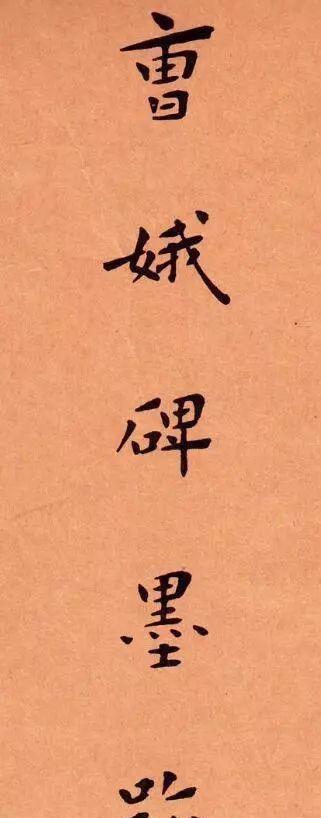 曹娥碑墨